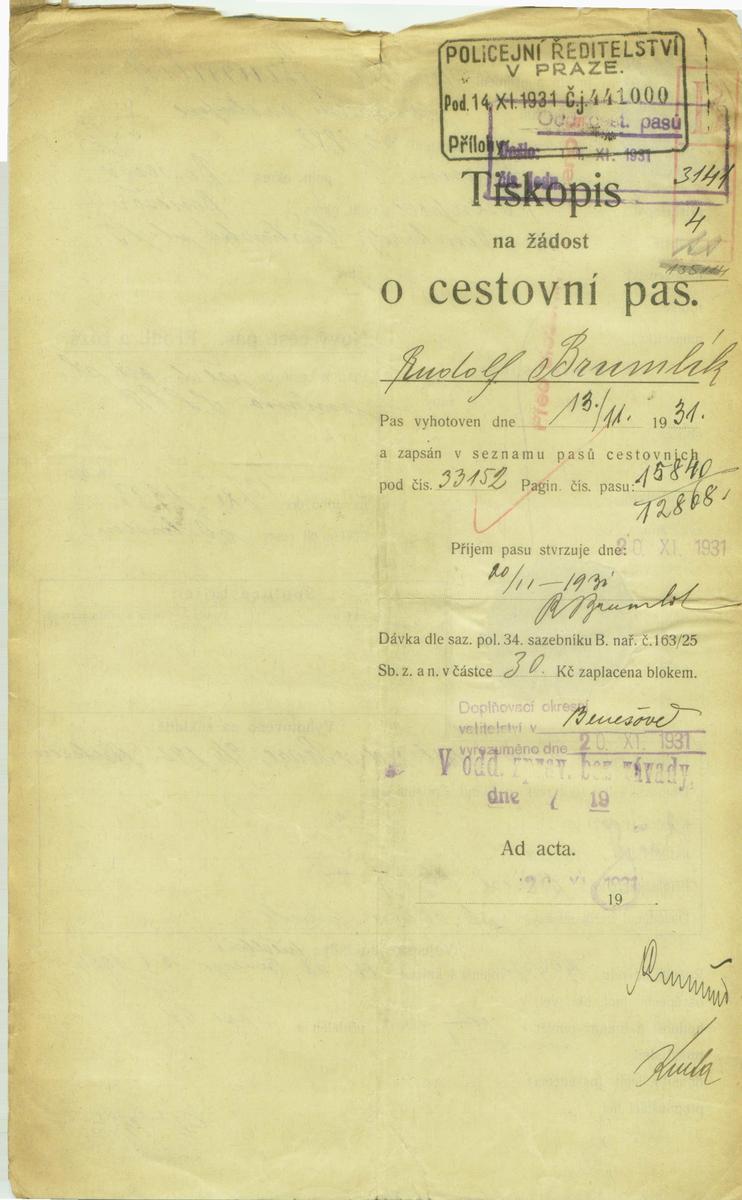 POLICEJNÍ ŘEDITELSTVÍ
V PRAZE.
Pod. 14 XI. 1931 Č.j. 441000
Odd. cest. pasů
Přílohy
Došlo: XI. 1931
čís. jedn.
3141
Tiskopis
4
na žádost
135114
o cestovní pas.
Rudolf Brumlík
Pas vyhotoven dne 13./11. 1931.
a zapsán v seznamu pasů cestovních
pod čís. 33152 Pagin. čís. pasu: 15840
12868.
Příjem pasu stvrzuje dne: 20. XI. 1931
20/11 – 1931
R Brumlík
Dávka dle saz. pol. 34. sazebníku B. nař. č. 163/25
Sb. z. a n. v částce 30. Kč zaplacena blokem.
Doplňovací okresní
velitelství v Benešově
vyrozuměno dne 20. XI. 1931
V odd. zprav. bez závady,
dne / 19
Ad acta.
20. XI. 1931
19